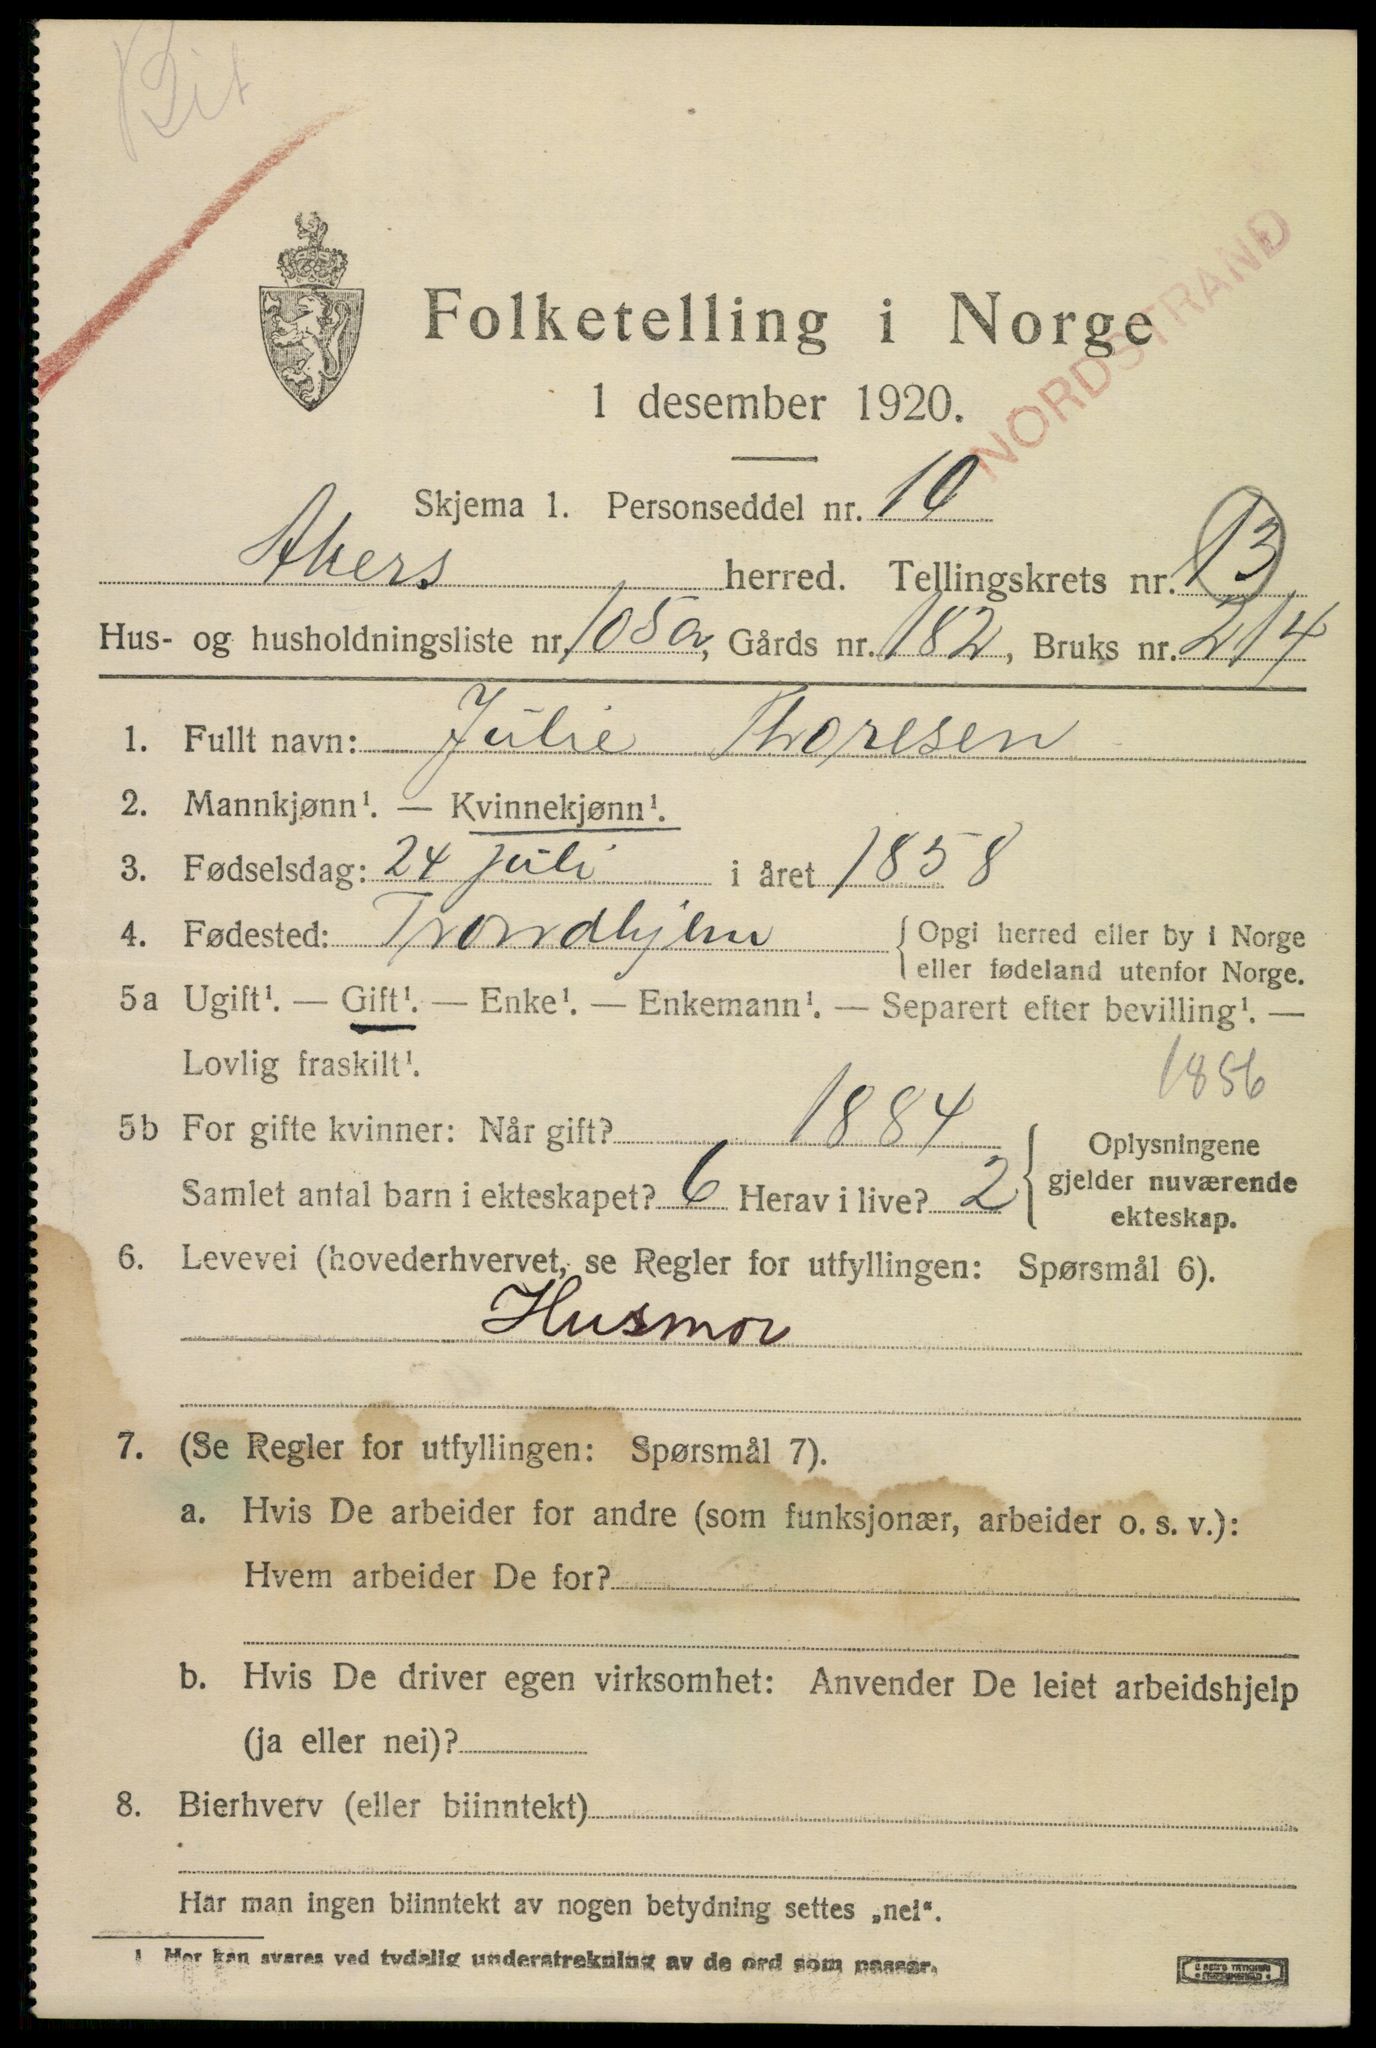 Folketelling i Norge
1 desember 1920.
NORDSTRAND
Skjema 1. Personseddel nr. 10
Akers herred. Tellingskrets nr. 13
Hus- og husholdningsliste nr. 105a, Gårds nr. 182, Bruks nr. 214
1. Fullt navn: Julie Thoresen
2. Mannkjønn¹. — Kvinnekjønn¹.
3. Fødselsdag: 24 juli i året 1858
4. Fødested: Trondhjem { Opgi herred eller by i Norge
eller fødeland utenfor Norge.
5a Ugift¹. — Gift¹. — Enke¹. — Enkemann¹. — Separert efter bevilling¹. —
Lovlig fraskilt¹.
1856
5b For gifte kvinner: Når gift? 1884
Samlet antal barn i ekteskapet? 6 Herav i live? 2
{ Oplysningene
gjelder nuværende
ekteskap.
6. Levevei (hovederhvervet, se Regler for utfyllingen: Spørsmål 6).
Husmor
7. (Se Regler for utfyllingen: Spørsmål 7).
a. Hvis De arbeider for andre (som funksjonær, arbeider o. s. v.):
Hvem arbeider De for?
b. Hvis De driver egen virksomhet: Anvender De leiet arbeidshjelp
(ja eller nei)?
8. Bierhverv (eller biinntekt)
Har man ingen biinntekt av nogen betydning settes „nei“.
1 Her kan svares ved tydelig understrekning av de ord som passer.